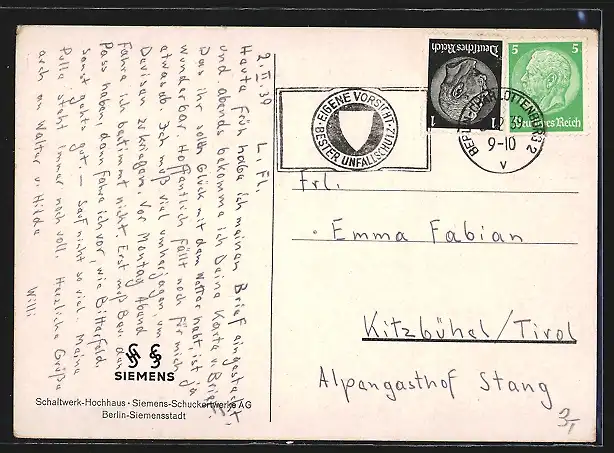 2.II.39   L. Fl.
Heute früh habe ich meinen Brief eingesteckt,
und abends bekomme ich Deine Karte u. Brief.
Das ihr solch Glück mit dem Wetter habt, ist ja
wunderbar. Hoffentlich fällt noch für mich
etwas ab. Ich muß viel umherjagen, um
Devisen zu kriegen. Vor Montag Abend
fahre ich bestimmt nicht. Erst muß Bau. den
Pass haben, dann fahre ich vor, wie Bitterfeld.
Sonst gehts gut. – Sauf nicht so viel. Meine
Pulle steht immer noch voll. Herzliche Grüße
auch an Walter u. Hilde
Willi
SIEMENS
Schaltwerk-Hochhaus · Siemens-Schuckertwerke AG
Berlin-Siemensstadt
EIGENE VORSICHT
BESTER UNFALLSCHUTZ
Deutsches Reich
1 1
5 5
Deutsches Reich
BERLIN-CHARLOTTENBURG 2
39
9-10
v
Frl.
Emma Fabian
Kitzbühel/Tirol
Alpengasthof Stang
3,-